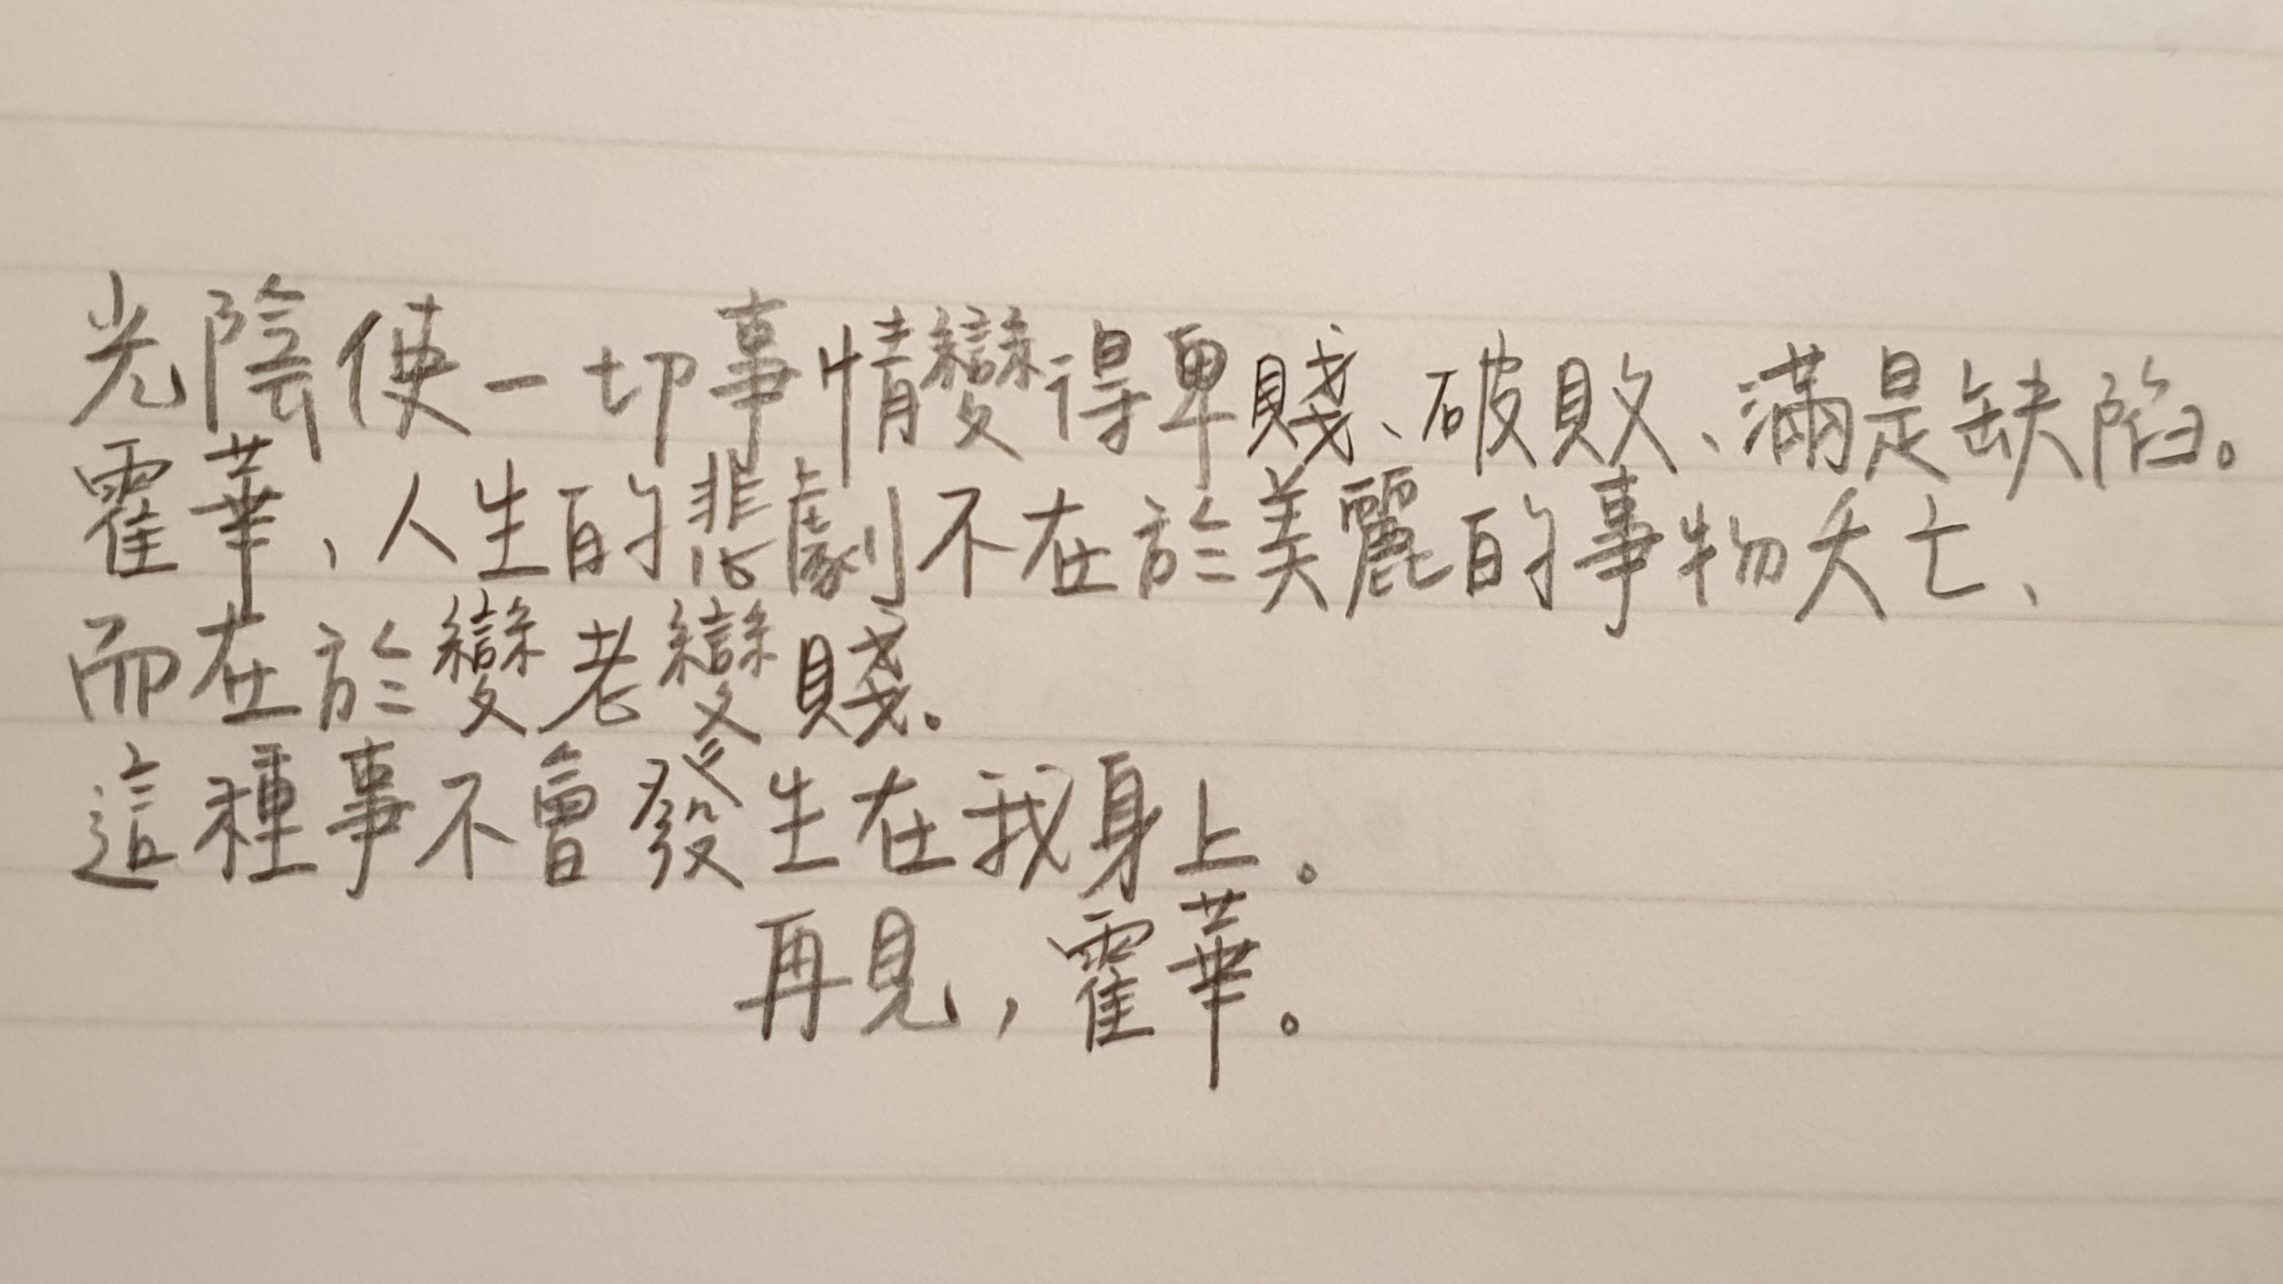 光陰使一切事情變得卑賤、破敗、滿是缺陷。
霍華、人生的悲劇不在於美麗的事物夭亡、
而在於變老變賤。
這種事不會發生在我身上。
再見，霍華。